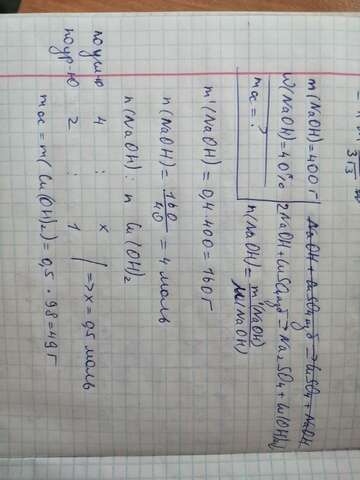 m(NaOH)=400г
NaOH + CuSO₄ изб → CuSO₄ + NaOH
W(NaOH)=40%
2NaOH + CuSO₄ изб → Na₂SO₄ + Cu(OH)₂
mос = ?
n(NaOH) = m'(NaOH)/M(NaOH)
m'(NaOH) = 0,4·400 = 160г
n(NaOH) = 160/40 = 4 моль
n(NaOH) : n Cu(OH)₂
по усл-ю 4 : x
по ур-ю 2 : 1
=> x = 0,5 моль
mос = m(Cu(OH)₂) = 0,5 · 98 = 49г